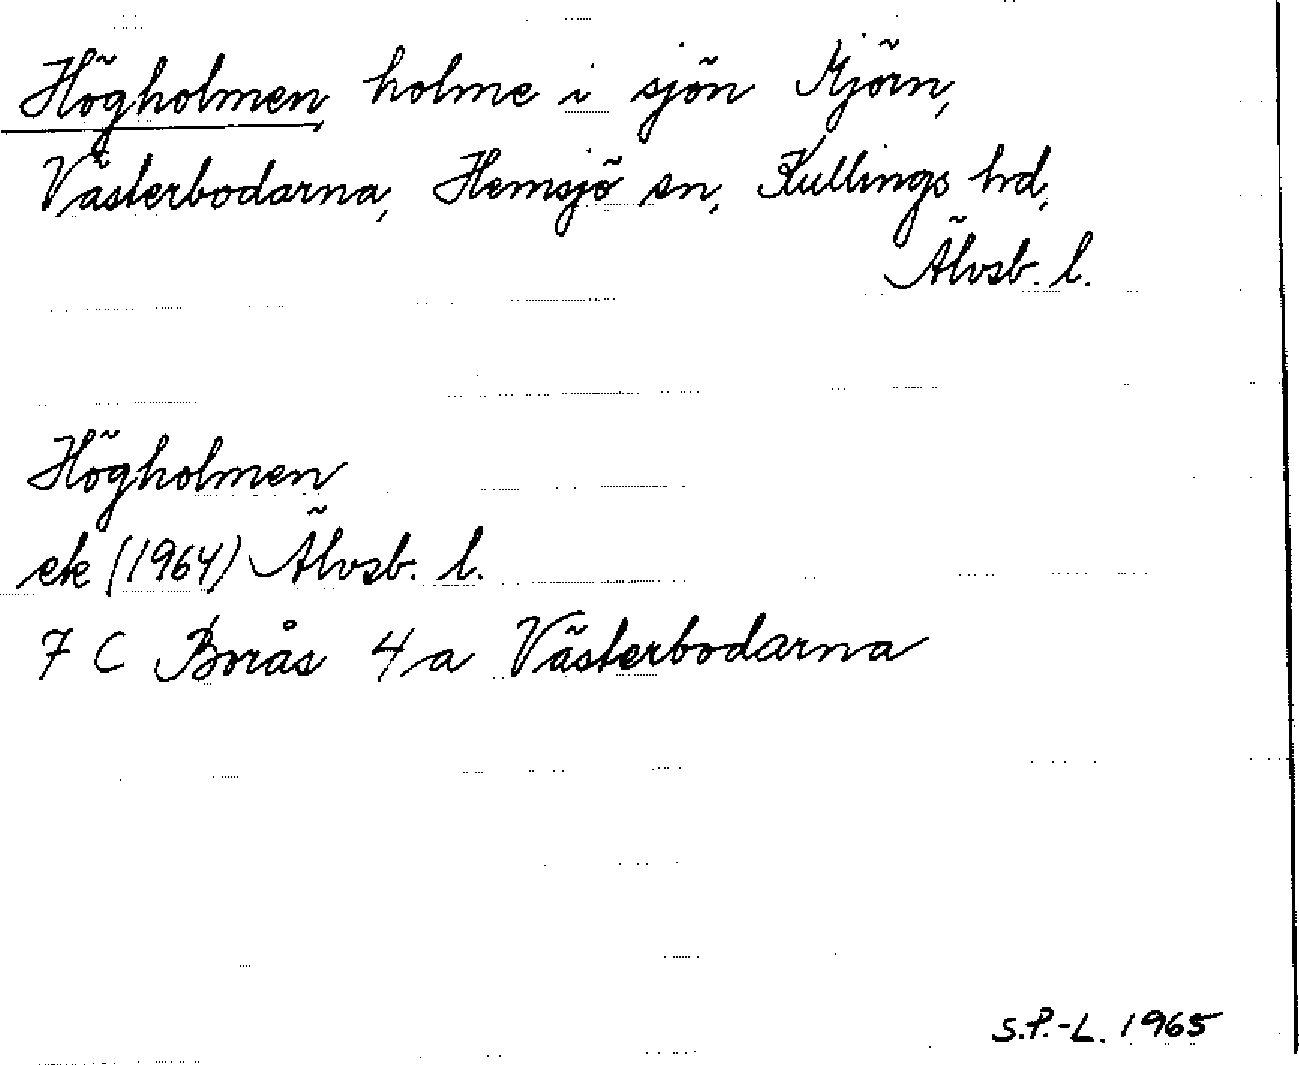 Högholmen, holme i sjön Mjörn,
Västerbodarna, Hemsjö sn, Kullings hd,
Älvsb. l.
Högholmen
ek (1964) Älvsb. l.
7 C Borås 4 a Västerbodarna
S.P.-L. 1965